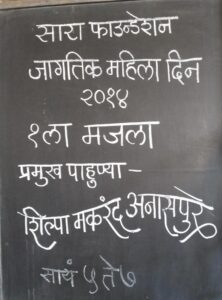 सारा फाउन्डेशन
जागतिक महिला दिन
२०१४
१ला मजला
प्रमुख पाहुण्या –
शिल्पा मकरंद अनासपुरे
सायं ५ ते ७